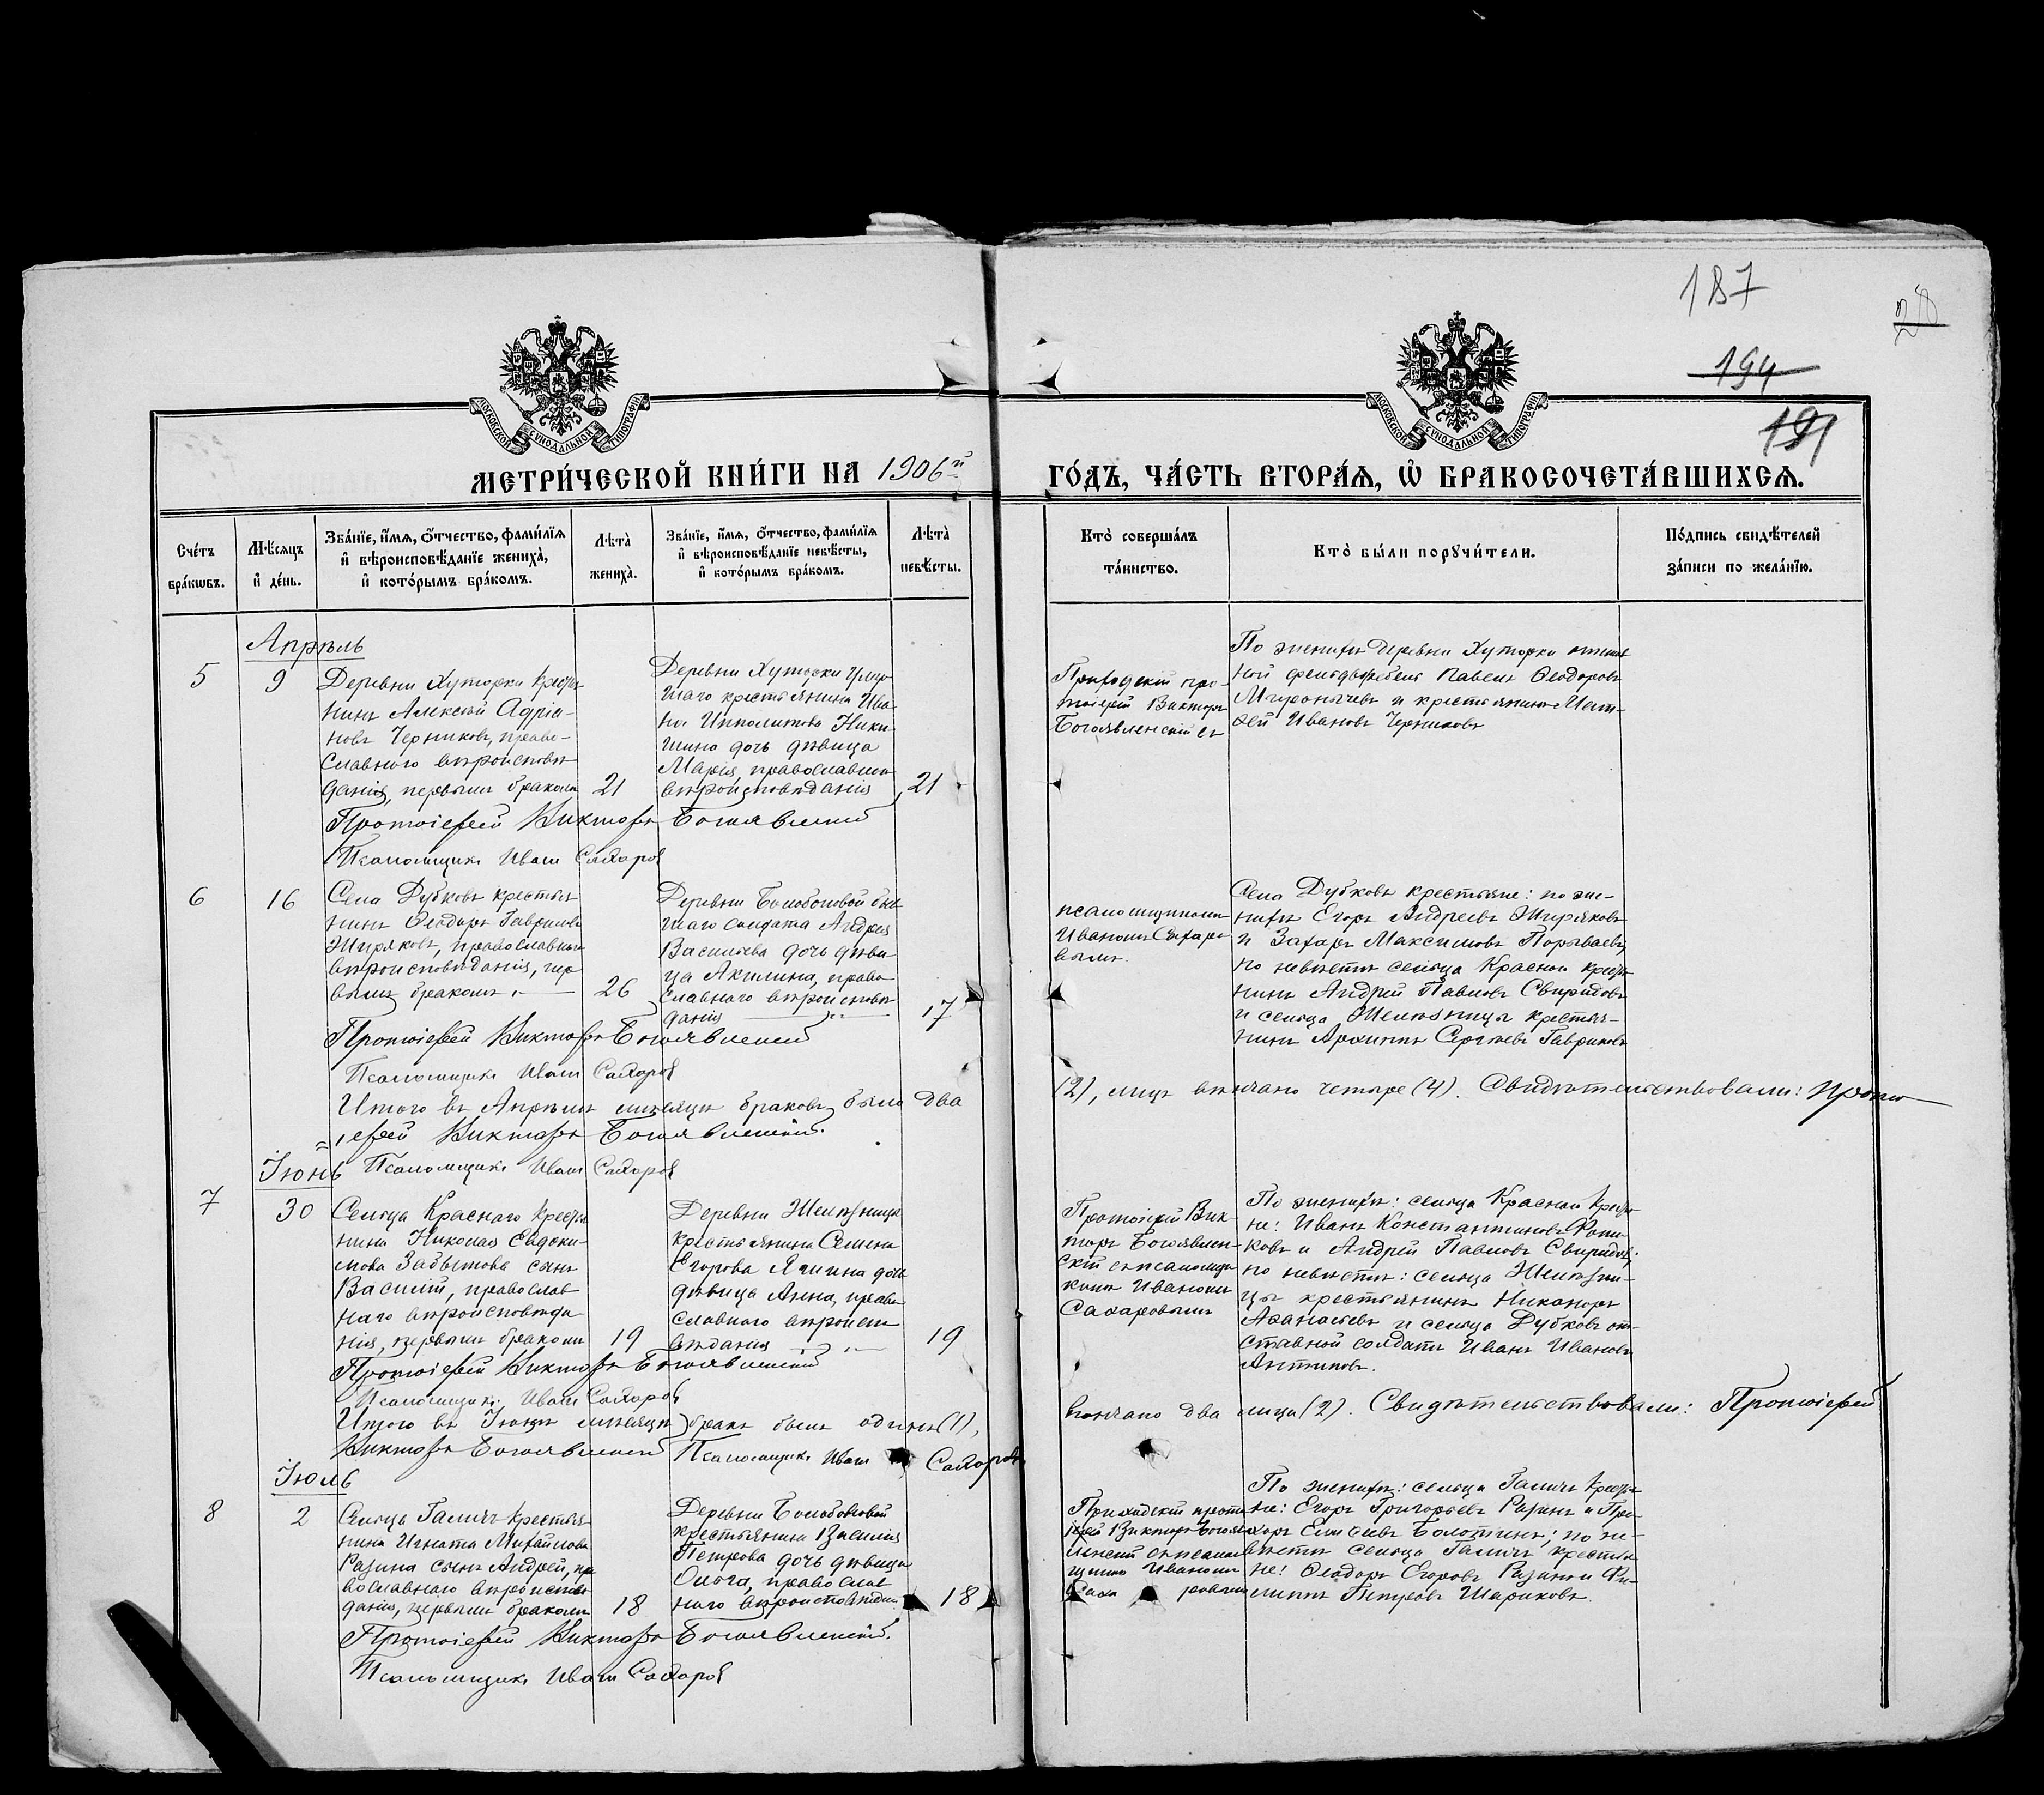 187
28
194
191
МОСКОВСКОЙ СѴНОДАЛЬНОЙ ТИПОГРАФІИ
МОСКОВСКОЙ СѴНОДАЛЬНОЙ ТИПОГРАФІИ
МЕТРИ́ЧЕСКОЙ КНИ́ГИ НА 1906й ГО́ДЪ, ЧА́СТЬ ВТОРА́Ѧ, Ѡ҆ БРАКОСОЧЕТА́ВШИХСѦ.
Сче́тъ бра́кѡвъ.
Мѣ́сѧцъ и҆ де́нь.
Зва́нїе, и҆́мѧ, ѻ҆́тчество, фами́лїѧ
и҆ вѣроисповѣ́данїе жениха̀,
и҆ кото́рымъ бра́комъ.
Лѣта̀
жениха̀.
Зва́нїе, и҆́мѧ, ѻ҆́тчество, фами́лїѧ
и҆ вѣроисповѣ́данїе невѣ́сты,
и҆ кото́рымъ бра́комъ.
Лѣта̀
невѣ́сты.
Кто̀ соверша́лъ
та́инство.
Кто̀ бы́ли порꙋчи́тели.
По́дпись свидѣ́телей
за́писи по жела́нїю.
Апрѣль
5
9
Деревни Хуторки кресть
нинъ Алексѣй Адріа-
новъ Черниковъ, право-
славнаго вѣроисповѣ
данія, первымъ бракомъ
21
Деревни Хуторки умер
шаго крестьянина Ива-
на Ипполитова Ники-
шина дочь дѣвица
Марія, православнаго
вѣроисповѣданія
21
Приходскій про-
тоіерей Викторъ
Богоявленскій съ
По женихѣ деревни Хуторки отстав
ной фельдфебель Павелъ Ѳеодоровъ
Миронычевъ и крестьянинъ Мат-
ѳей Ивановъ Черниковъ
Протоіерей Викторъ Богоявленскій
Псаломщикъ Иванъ Сахаровъ
6
16
Села Дубковъ крестья
нинъ Ѳеодоръ Гавриловъ
Жиряковъ, православнаго
вѣроисповѣданія, пер
вымъ бракомъ
26
Деревни Болобоновой быв
шаго солдата Андрея
Васильева дочь дѣви-
ца Акилина, право
славнаго вѣроисповѣ
данія
17
псаломщикомъ
Иваномъ Сахаро
вымъ.
Села Дубковъ крестьяне: по же-
нихѣ Егоръ Андреевъ Жиряковъ
и Захаръ Максимовъ Порываевъ,
по невѣстѣ сельца Краснаго кресть
нинъ Андрей Павловъ Свиридовъ
и сельца Желѣзницы крестья-
нинъ Архиппъ Сергѣевъ Гавриковъ
Протоіерей Викторъ Богоявленскій
Псаломщикъ Иванъ Сахаровъ
Итого въ Апрѣлѣ мѣсяцѣ браковъ было два (2), лицъ вѣнчано четыре (4). Свидѣтельствовали: Прото
іерей Викторъ Богоявленскій.
Псаломщикъ Иванъ Сахаровъ
Іюнь
7
30
Сельца Краснаго крестья
нина Николая Евдоки-
мова Забытова сынъ
Василій, православ
наго вѣроисповѣда
нія, первымъ бракомъ
19
Деревни Желѣзницы
крестьянина Семена
Егорова Ялина дочь
дѣвица Анна, право
славнаго вѣроиспо
вѣданія
19
Протоіерей Вик-
торъ Богоявлен-
скій съ псаломщи
комъ Иваномъ
Сахаровымъ
По женихѣ: сельца Краснаго кресть
не: Иванъ Константиновъ Фоми-
ковъ и Андрей Павловъ Свиридовъ;
по невѣстѣ: сельца Желѣзни-
цы крестьянинъ Никаноръ
Аѳанасьевъ и сельца Дубковъ от-
ставной солдатъ Иванъ Ивановъ
Антиповъ.
Протоіерей Викторъ Богоявленскій
Псаломщикъ Иванъ Сахаровъ
Итого въ Іюнѣ мѣсяцѣ бракъ былъ одинъ (1), вѣнчано два лица (2). Свидѣтельствовали: Протоіерей
Викторъ Богоявленскій Псаломщикъ Иванъ Сахаровъ
Іюль
8
2
Сельца Галичъ крестья
нина Игната Михайлова
Разина сынъ Андрей, пра
вославнаго вѣроисповѣ
данія, первымъ бракомъ
18
Деревни Болобоновой
крестьянина Василія
Петрова дочь дѣвица
Ольга, православ
наго вѣроисповѣдан.
18
Приходскій прото
іерей Викторъ Богояв
ленскій съ псалом
щикомъ Иваномъ
Саха ровымъ
По женихѣ: сельца Галичъ кресть
не: Егоръ Григорьевъ Разинъ и Про-
хоръ Елисѣевъ Болотинъ; по не-
вѣстѣ сельца Галичъ крестья
не: Ѳеодоръ Егоровъ Разинъ и Фи-
липпъ Петровъ Шариковъ.
Протоіерей Викторъ Богоявленскій.
Псаломщикъ Иванъ Сахаровъ